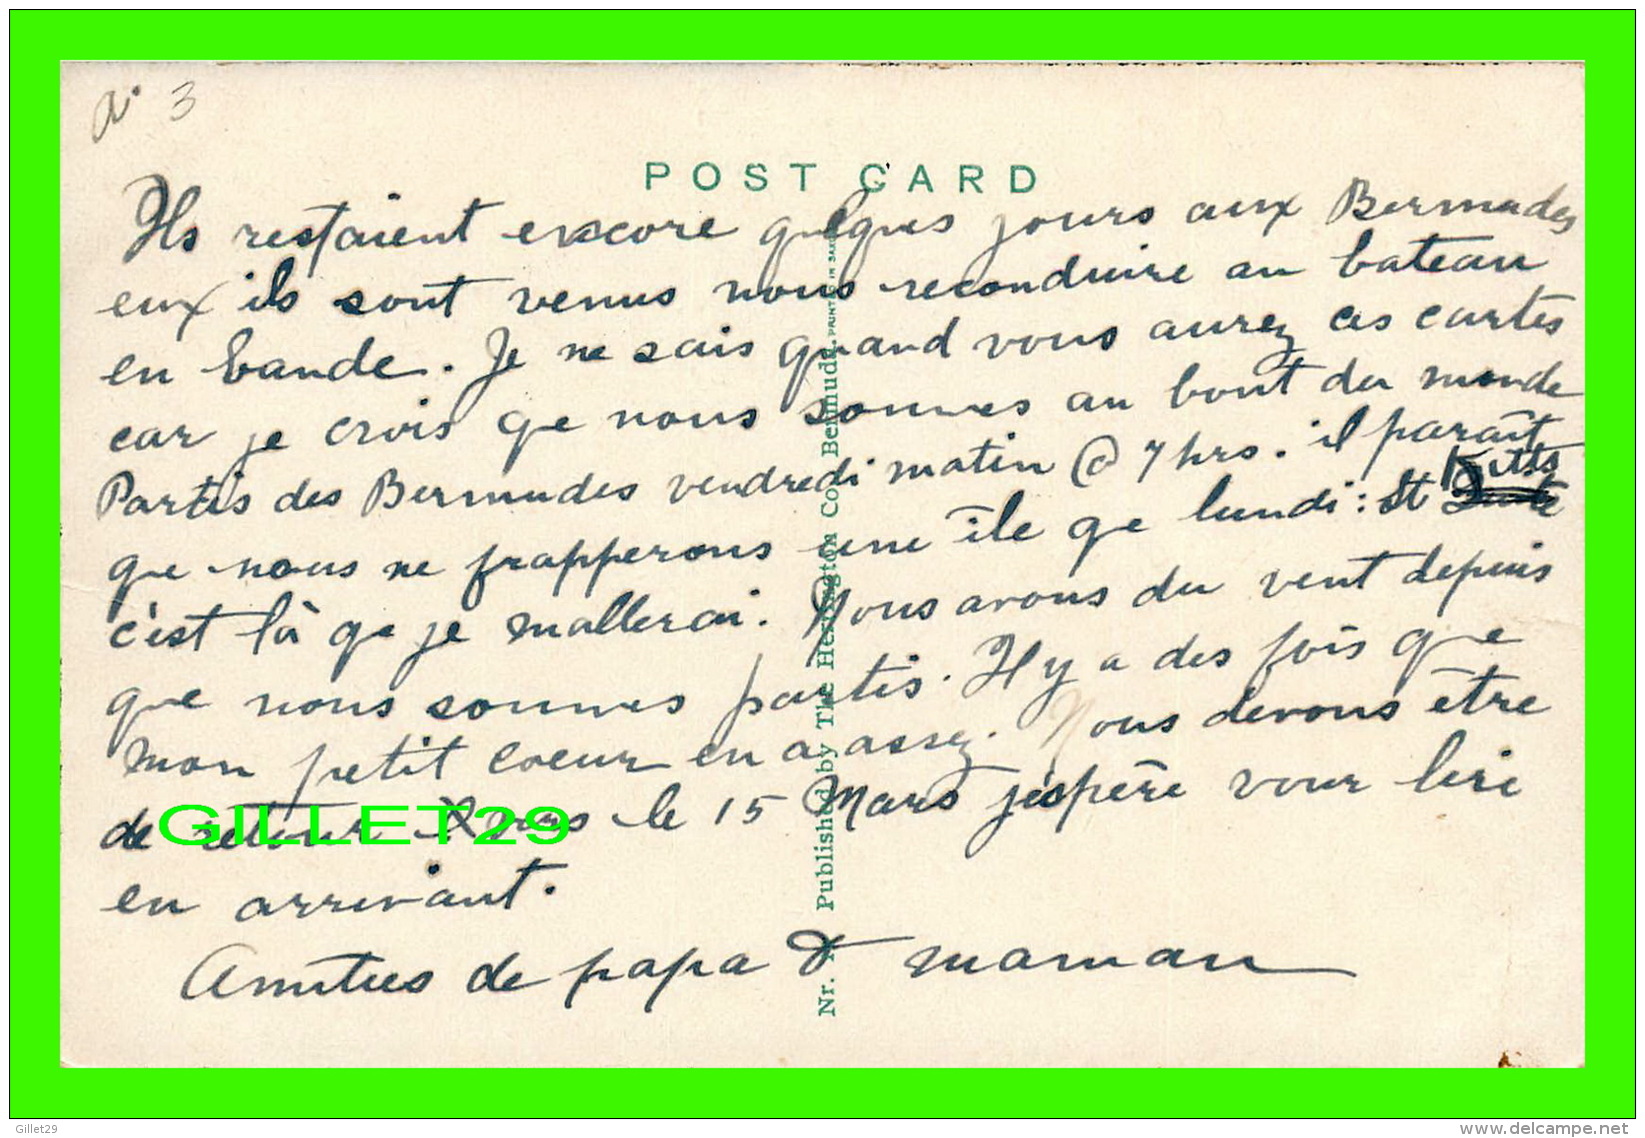 No 3
POST CARD
Ils restaient encore quelques jours aux Bermudes
eux ils sont venus nous reconduire au bateau
en bande. Je ne sais quand vous aurez ces cartes
car je crois qe nous sommes au bout du monde
Partis des Bermudes vendredi matin @ 7 hrs. il paraît
que nous ne frapperons une île qe lundi: St Kitts
c'est là qe je mallerai. Nous avons du vent depuis
que nous sommes partis. Il y a des fois que
mon petit coeur en a assez. Nous devons être
de retour vers le 15 Mars j'espère vour lire
en arrivant.
Amities de papa & maman
Nr. Published by The Herrington Co. Bermuda. PRINTED IN
GILLET29
Gillet29
www.delcampe.net